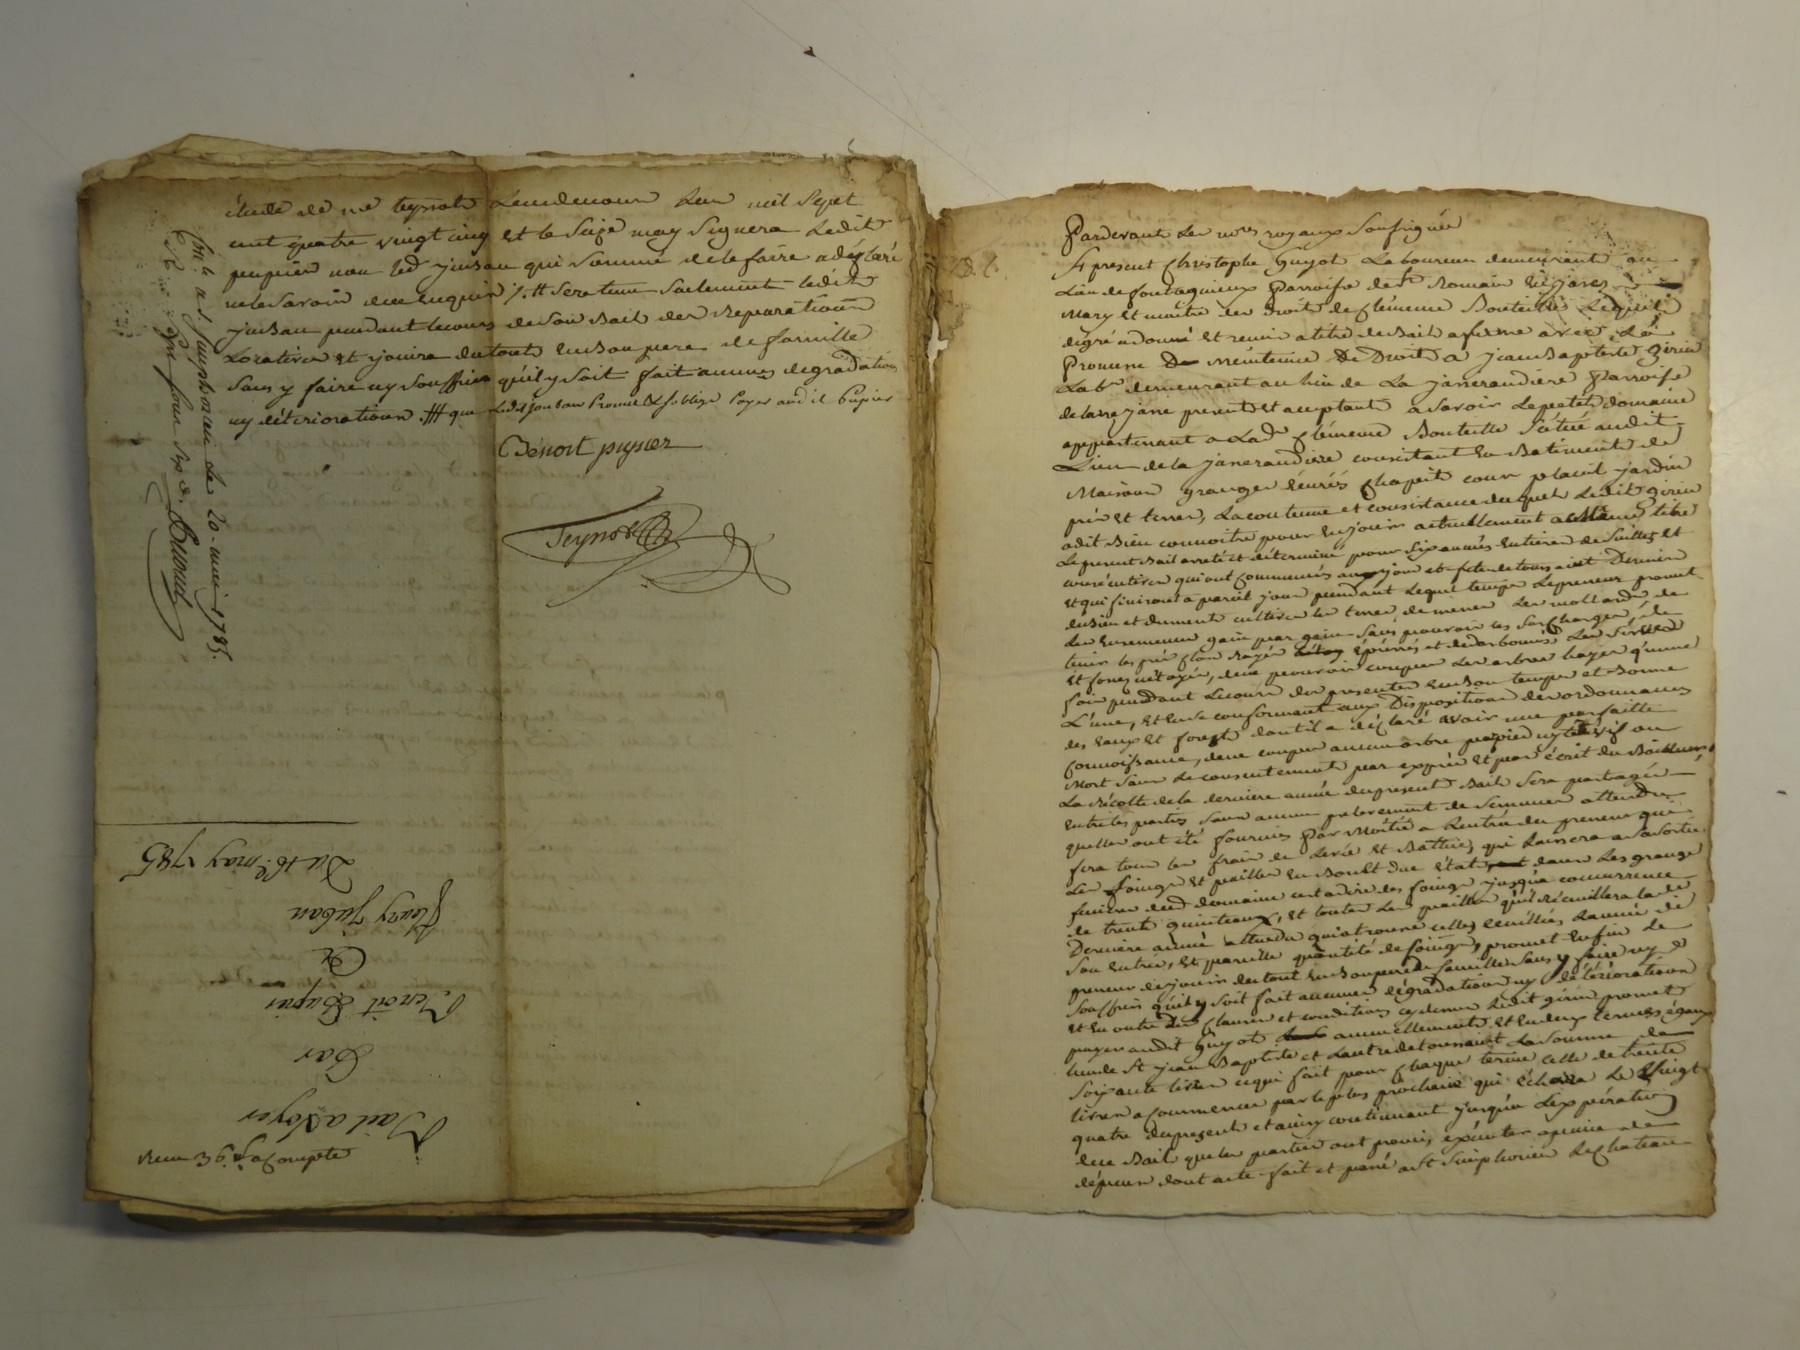 étude de me teynot Lendemoun Lan mil Sept
cent quatre vingt cinq et le Seize may Signera Ledit
pupier non led juban qui Sommé de le faire a déclaré
ne le Savoir de ce enquis /. # Sera tenu Seulement ledit
juban pendant le cours de Son Bail des Reparations
Locatives et jouira du tout en Bon pere de famille
Sans y faire ny Souffrir qu'il y Soit fait aucunes degradations
ny détérioration . ## que Ledit Promet & Soblige Payer aud it Pupier
Benoit pupier
Teynot
Con.lé a S. Simphorien le 20. may 1785.
Bail a Loyer
Par
Benoit Pupier
A
Fleury Juban
Du 16e. may 1785
Pardevant Les no.res royaux Soussignés
ft present Christophe Guyot Laboureur demeurant au
Lieu de fontagnieux Parroisse de St. Romain En jarés
Mary Et maitre des droits de Clémence Bouteille Lequel
degré a donné et remis a titre de Bail a ferme avec
Promesse De meintenue De Droit a jean Baptiste Girin
Lab.r demeurant au lieu de La janerandiere Parroisse
de Larejasse present et aceptant a Savoir Le petit domaine
appartenant a Lad. Clémence Bouteille Sçitué audit
Lieu de la janerandiere consistant En Batiments de
Maison granges Ecuries Chapit cour placiil jardin
prés et terres, La contenue et consistance duquel Ledit Girin
a dit Bien connoitre pour En jouir actuellement a même titre
Le present Bail arreté et déterminé pour Six années Entieres de Suittes et
consécutives qui ont Commencés au jour et fete de toussaint Dernier
Et qui finiront a pareil jour pendant Lequel temps Le preneur promet
de Bien et dument cultiver les terres de mener Les mollards de
Les Ensemencer gain par gain Sans pouvoir les Surcharger, de
tenir les prés Clos Rayés épierrés et dedarbounés Les Serves
Et foses netoyés, de ne pouvoir couper Les arbres hayes qu'une
fois pendant Le cours des presentes En Bon temps et Bonne
L'une, et En Se conformant aux Dispositions des ordonnances
des Eaux Et forest dont il a déclaré avoir une parfaitte
Connoissance, de ne couper aucun arbre par pied ny tete vif ou
Mort Sans Le consentement par exprès Et par écrit du Bailleur
La Récolte de la derniere année du present Bail Sera partagée
Entre les parties Sans aucun prelevement de Semences attendu
quelles ont été fournies Par Moitié a Lentrée du preneur qui
fera tous les frais de Levée Et Battue, qui Laissera a Sa Sortie
Les foings Et pailles En Bon Et due état dans Les granges
fenieres dud domaine cest a dire des foings jusqua concurrence
de trente quinteaux, et toutes Les pailles qu'il Récueillera la de
Derniere année attendu qui a trouvé celles ceuillies Lannée de
Son Entrée, Et pareille quantité de foings, promet Enfin Le
preneur de jouir du tout En Bon pere de famille Sans y faire ny
Souffrir qu'il y Soit fait aucunes dégradations ny détériorations
Et En outre Les Clauses et conditions cy dessus Ledit Girin promet
payer audit Guyot annuellement Et En deux termes égaux
Lun de St jean Baptiste et Lautre de toussaint La Somme de
Soixante livres ce qui fait pour Chaque terme celle de trente
livres a Commencer par le prochain qui échoira Le Vingt
quatre du present et ainsy continuant jusqua Lexpiration
de ce Bail que les parties ont promis exécuter a peine de
dépens dont acte fait et passé a St Simphorien Le Chateau